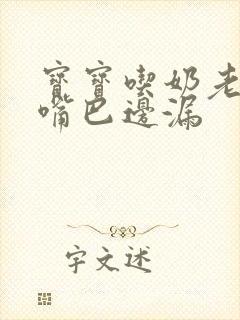 寶寶喫奶老
嘴巴邊漏
字文述